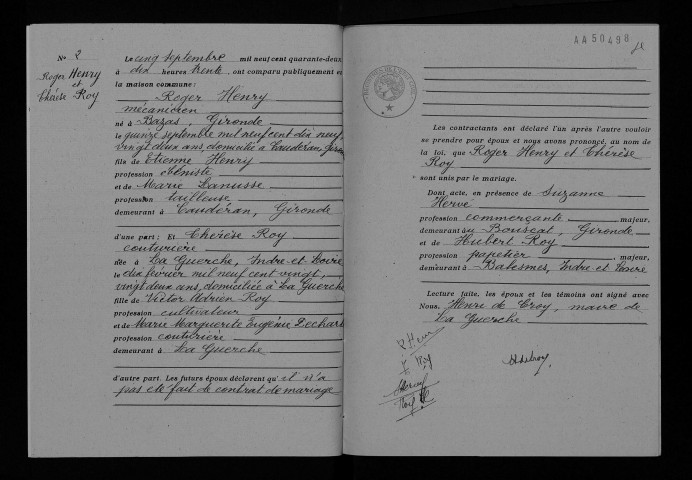 N° 2
Roger Henry
et
Thérèse Roy
Le cinq Septembre mil neuf cent quarante-deux
à dix heures trente, ont comparu publiquement en
la maison commune:
Roger Henry
mécanicien
né à Bazas, Gironde
le quinze septembre mil neuf cent dix neuf
vingt deux ans, domicilié à Caudéran, Gironde
fils de Etienne Henry
profession ébéniste
et de Marie Lanusse
profession tailleuse
demeurant à Caudéran, Gironde
d'une part; Et Thérèse Roy
couturière
née à La Guerche, Indre-et-Loire
le dix février mil neuf cent vingt,
vingt deux ans, domiciliée à La Guerche
fille de Victor Adrien Roy
profession cultivateur
et de Marie Marguerite Eugénie
profession couturière
demeurant à La Guerche
d'autre part. Les futurs époux déclarent qu'il n'a
pas été fait de contrat de mariage
AA50498
Les contractants ont déclaré l'un après l'autre vouloir
se prendre pour époux et nous avons prononcé, au nom de
la loi, que Roger Henry et Thérèse
Roy
sont unis par le mariage.
Dont acte, en présence de Suzanne
Hervé
profession commerçante, majeur,
demeurant au Bouscat, Gironde
et de Hubert Roy
profession papetier, majeur,
demeurant à Balesmes, Indre et Loire
Lecture faite, les époux et les témoins ont signé avec
Nous, Henri de Croy, maire de
La Guerche
R Henry
T Roy